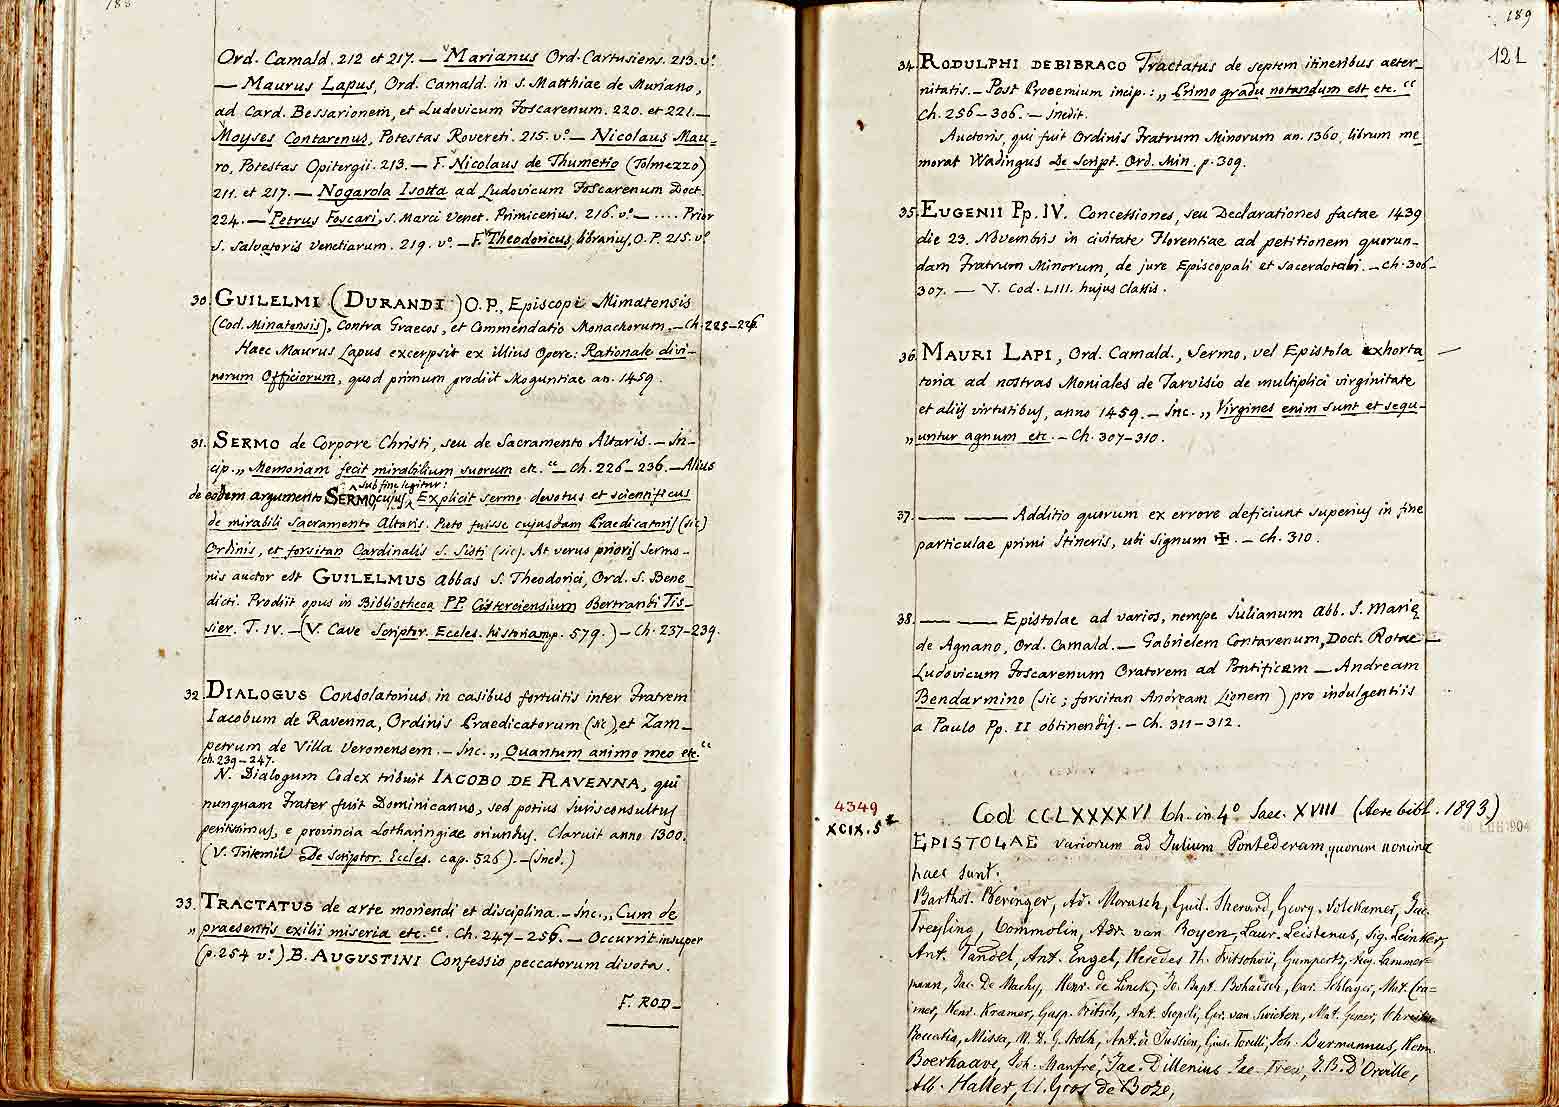 188
Ord. Camald. 212 et 217. — Marianus Ord. Cartusiens. 213. v.º
— Maurus Lapus, Ord. Camald. in S. Matthiae de Muriano,
ad Card. Bessarionem, et Ludovicum Foscarenum. 220. et 221. —
Moyses Contarenus, Potestas Rovereti. 215. v.º — Nicolaus Mau-
ro, Potestas Opitergii. 213. — F. Nicolaus de Thumetio (Tolmezzo)
211. et 217. — Nogarola Isotta ad Ludovicum Foscarenum Doct.
224. — Petrus Foscari, S. Marci Venet. Primicerius. 216. v.º — .... Prior
S. Salvatoris Venetiarum. 219. v.º — F. Theodoricus, librarius, O. P. 215. v.º
30. GUILELMI (DURANDI) O. P., Episcopi Mimatensis
(Cod. Minatensis), Contra Graecos, et Commendatio Monachorum. — Ch. 225-226
Haec Maurus Lapus excerpsit ex illius Opere: Rationale divi-
norum Officiorum, quod primum prodiit Moguntiae an. 1459.
31. SERMO de Corpore Christi, seu de Sacramento Altaris. — In-
cip. „ Memoriam fecit mirabilium suorum etc. “ — Ch. 226-236. — Alius
sub fine legitur:
de eodem argumento SERMO, cujus Explicit sermo devotus et scientificus
de mirabili Sacramento Altaris. Puto fuisse cujusdam Praedicatoris (sic)
Ordinis, et forsitan Cardinalis S. Sisti (sic). At verus prioris Sermo-
nis auctor est GUILELMUS Abbas S. Theodorici, Ord. S. Bene-
dicti. Prodiit opus in Bibliotheca PP. Cisterciensium Bertrandi Tis-
sier. T. IV. — (V. Cave Scriptor. Eccles. historiam p. 579.) — Ch. 237-239.
32. DIALOGUS Consolatorius in casibus fortuitis inter Fratrem
Iacobum de Ravenna, Ordinis Praedicatorum (sic), et Zam-
petrum de Villa Veronensem. — Inc. „ Quantum animo meo etc. “
Ch. 239-247.
N. Dialogum Codex tribuit IACOBO DE RAVENNA, qui
nunquam Frater fuit Dominicanus, sed potius Iurisconsultus
peritissimus, e provincia Lotharingiae oriundus. Claruit anno 1300.
(V. Tritemii De Scriptor. Eccles. cap. 526). — (Ined.)
33. TRACTATUS de arte moriendi et disciplina. — Inc. „ Cum de
„ praesentis exilii miseria etc. “. Ch. 247-256. — Occurrit insuper
(p. 254 v.º) B. AUGUSTINI Confessio peccatorum divota.
F. ROD-
189
121
34. RODULPHI DE BIBRACO Tractatus de septem itineribus aeter-
nitatis. — Post Prooemium incip.: „ Primo gradu notandum est etc. “
Ch. 256-306. — Inedit.
Auctoris, qui fuit Ordinis Fratrum Minorum an. 1360, librum me-
morat Wadingus De Script. Ord. Min. p. 309.
35. EUGENII Pp. IV. Concessiones, seu Declarationes factae 1439
die 23. Novembris in civitate Florentiae ad petitionem quorun-
dam Fratrum Minorum, de jure Episcopali et Sacerdotali. — Ch. 306-
307. — V. Cod. LIII. hujus Classis.
36. MAURI LAPI, Ord. Camald., Sermo, vel Epistola exhorta-
toria ad nostras Moniales de Tarvisio de multiplici virginitate
et aliis virtutibus, anno 1459. — Inc. „ Virgines enim sunt et sequ-
„ untur agnum etc. — Ch. 307-310.
37. —— —— Additio quorum ex errore deficiunt superius in fine
particulae primi Itineris, ubi signum ✠. — Ch. 310.
38. —— —— Epistolae ad varios, nempe Iulianum Abb. S. Marię
de Agnano, Ord. Camald. — Gabrielem Contarenum, Doct. Rotae —
Ludovicum Foscarenum Oratorem ad Pontificem — Andream
Bendarmino (sic; forsitan Andream Lionem) pro indulgentiis
a Paulo Pp. II obtinendis. — Ch. 311-312.
4349 Cod CCLXXXXVI Ch. in 4º Saec. XVIII (Aere bibl. 1893.)
XCIX. 5
EPISTOLAE variorum ad Iulium Pontederam, quorum nomina
haec sunt.
Barthol. Beringer, Ad. Morasch, Guil. Sherard, Georg. Volckamer, Iac.
Treyling, Commolin, Adr. van Royen, Laur. Leistenus, Sig. Leinker,
Ant. Tandel, Ant. Engel, Heredes Th. Fritschii, Gumpertz, Aug. Lammer-
mann, Iac. De Machy, Henr. de Linck, Io. Bapt. Bohadsch, Car. Schlager, Mat. Cra-
mer, Henr. Kramer, Gasp. Fritsch, Ant. Scopoli, Ger. van Swieten, Mat. Gesner,
Boccatia, Missa, Ant. de Jussieu, Gius. Torelli, Joh. Burmannus, Herm.
Boerhaave, Joh. Manfré, Jac. Dillenius Jac. Trew, J. B. D'Orville,
Alb. Haller, Cl. Gros de Boze,